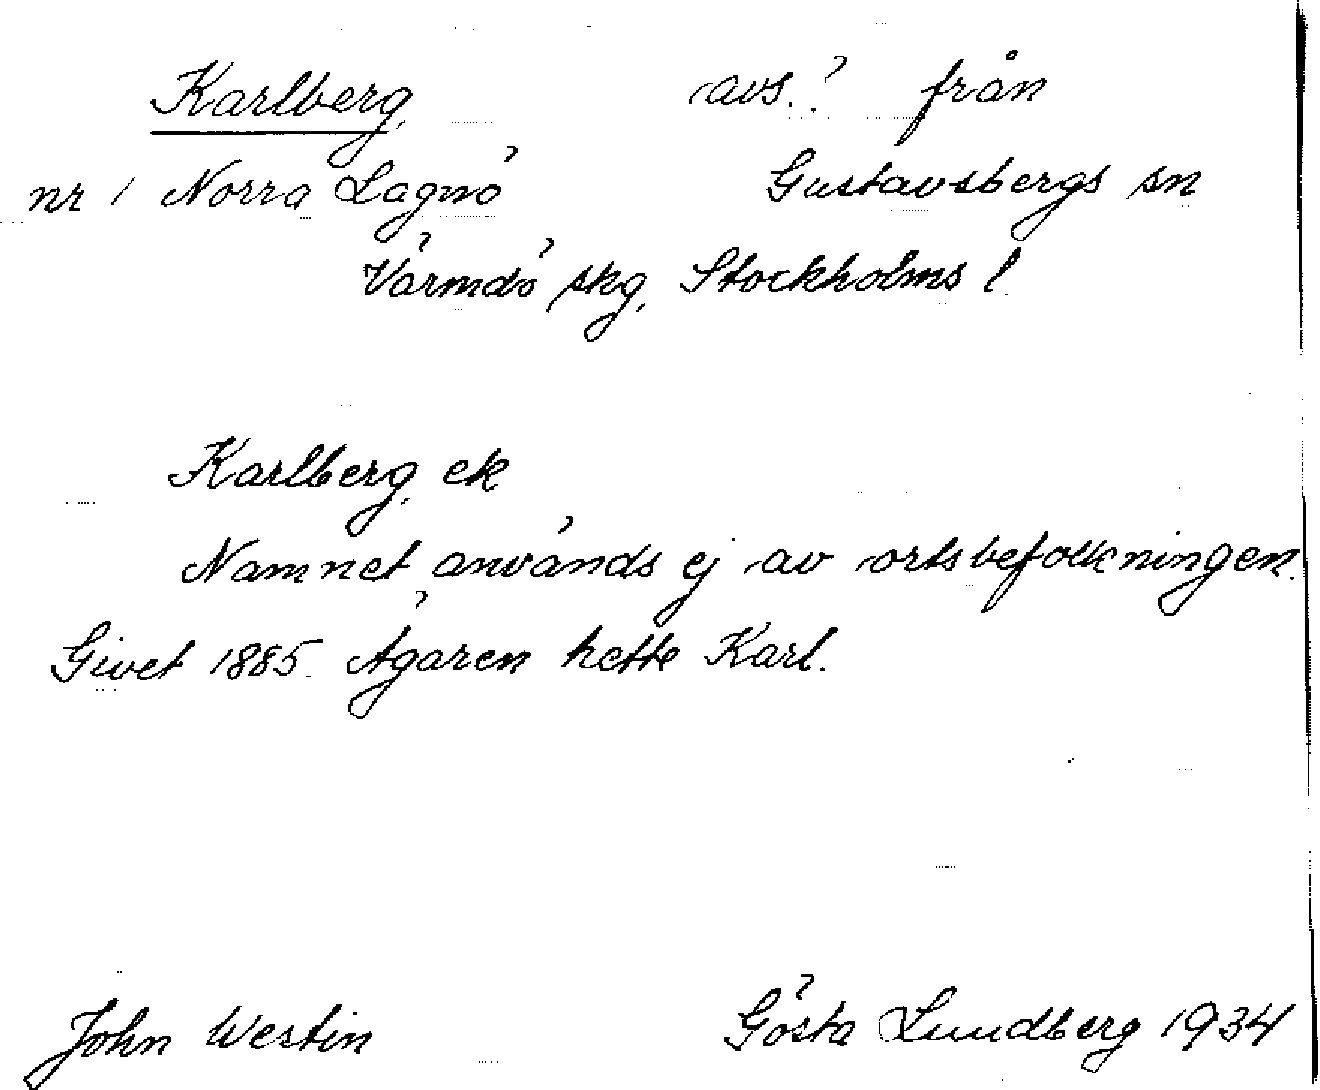 Karlberg, avs.? från
nr 1 Norra Lagnö Gustavsbergs sn
Värmdö skg, Stockholms l
Karlberg, ek
Namnet används ej av ortsbefolkningen.
Givet 1885. Ägaren hette Karl.
John Westin Gösta Lundberg 1934